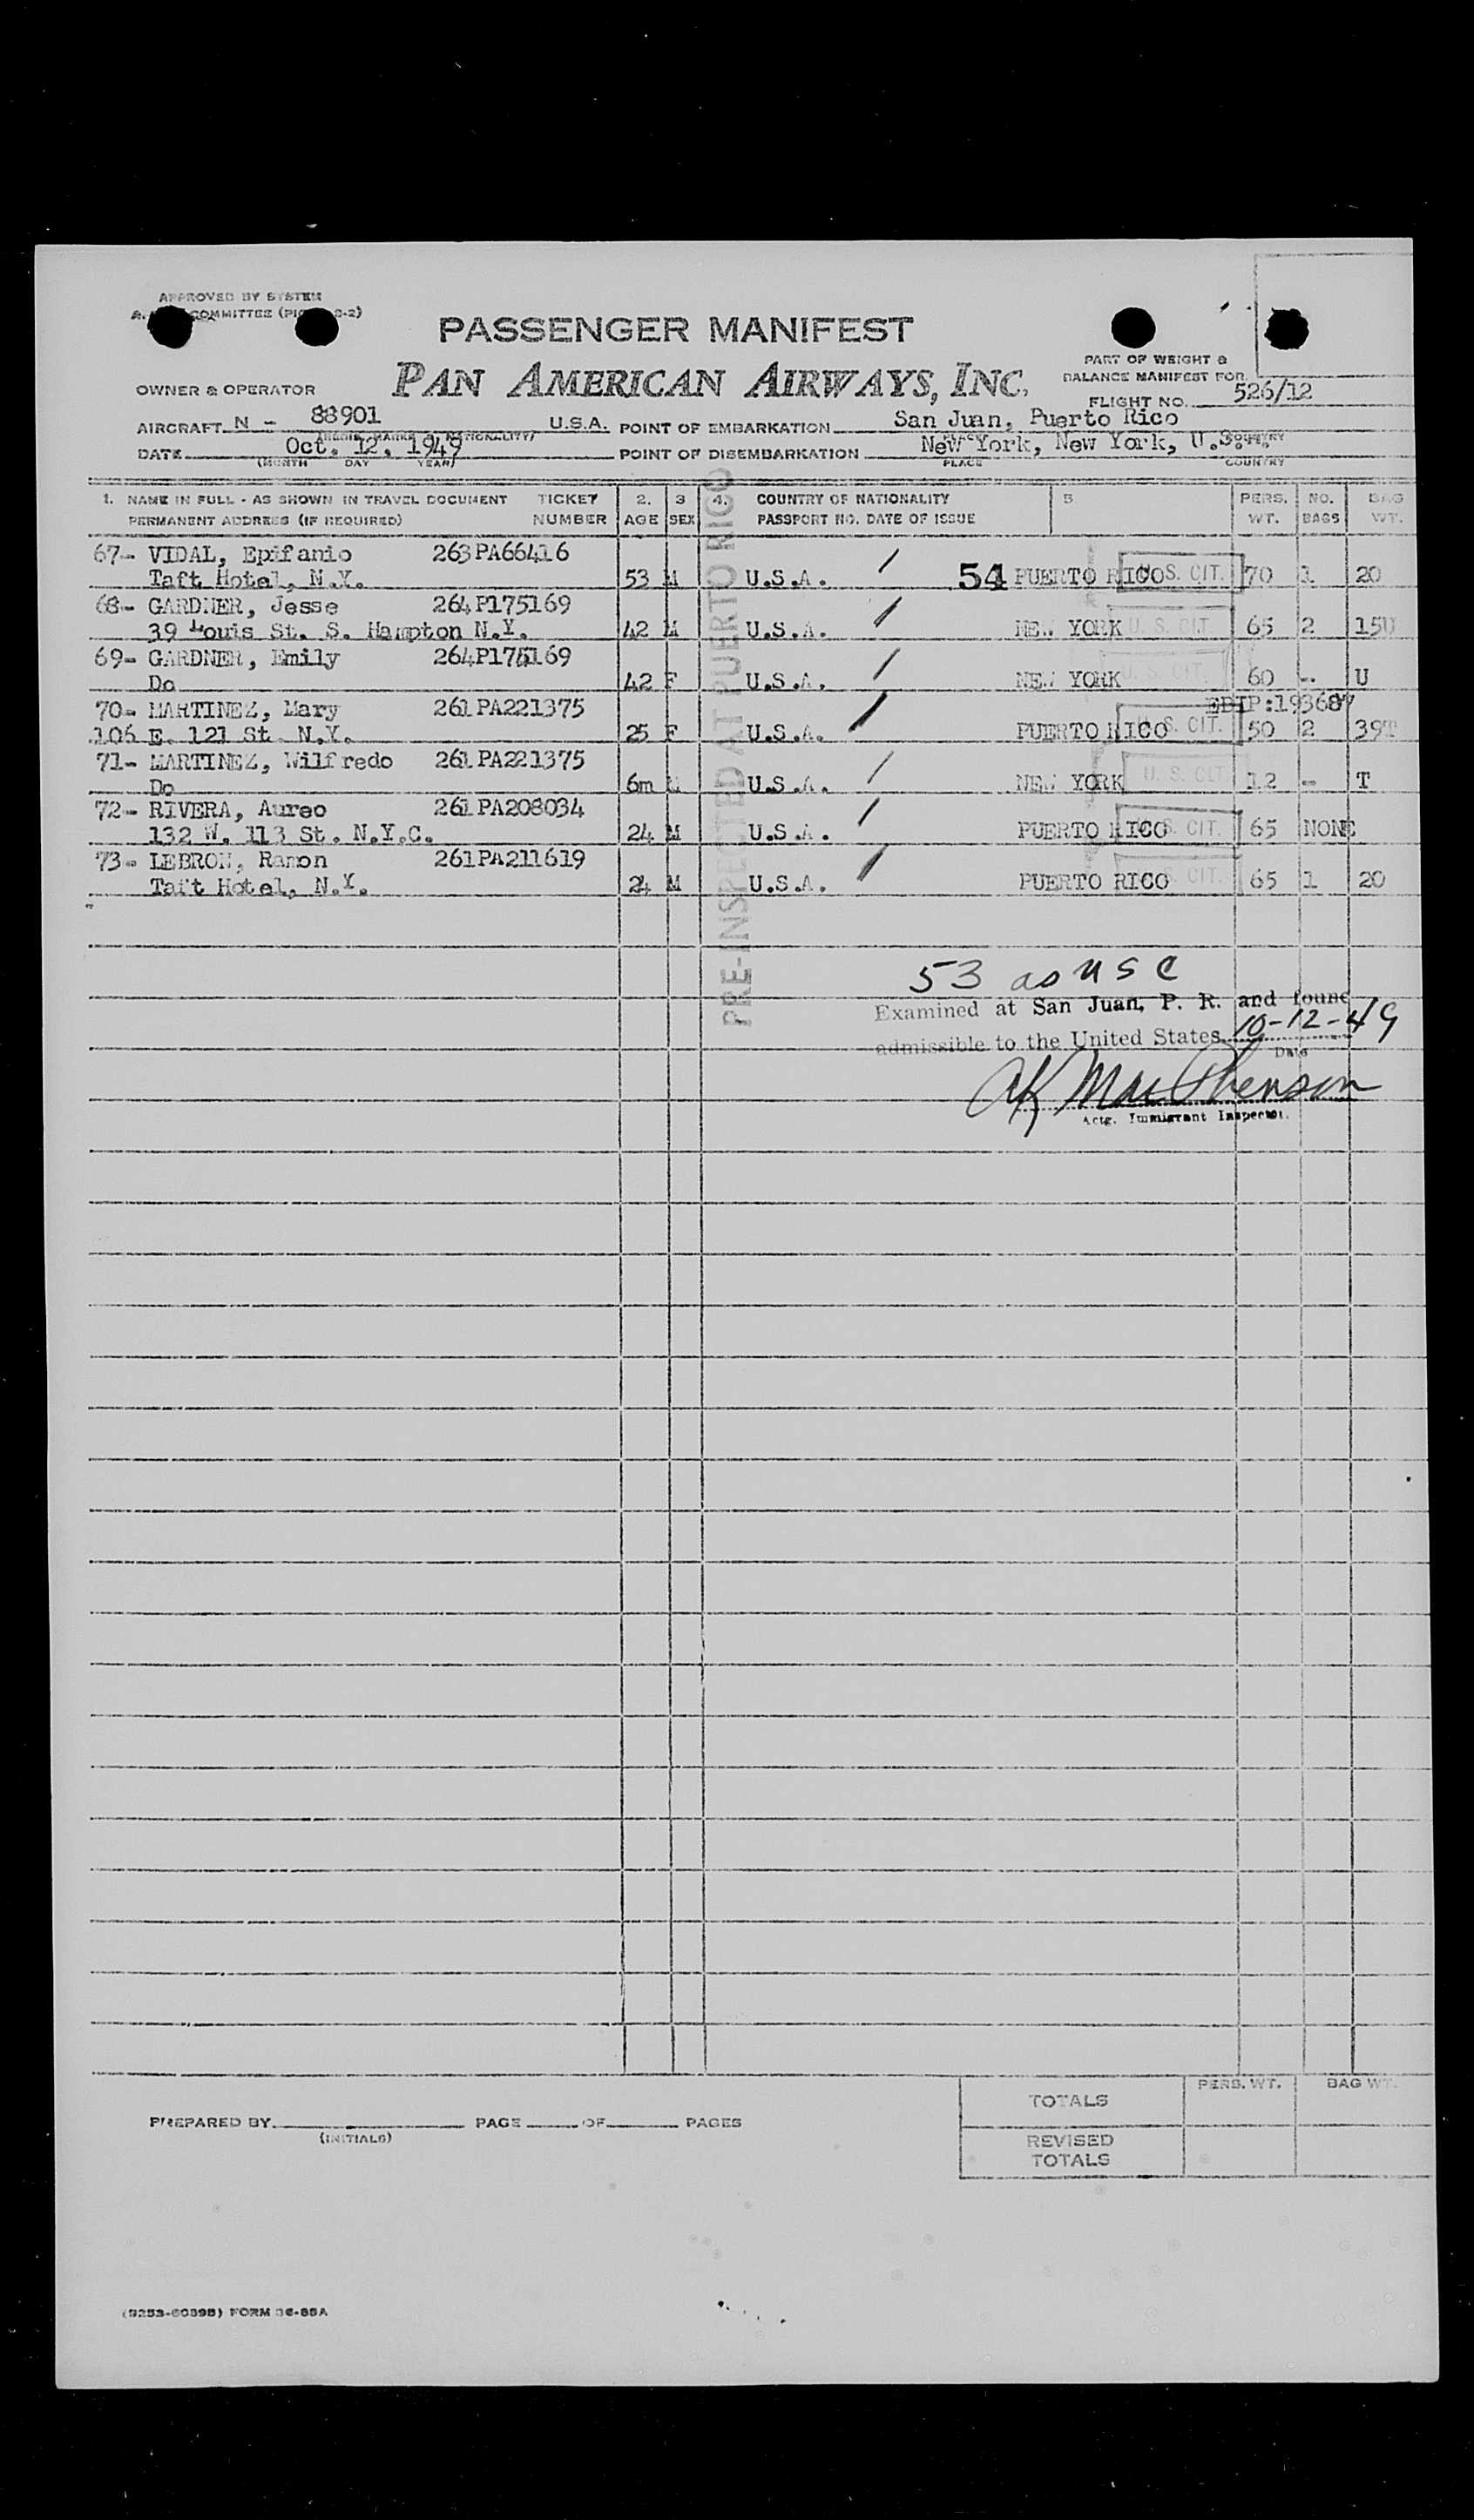 APPROVED BY SYSTEM
COMMITTEE
PASSENGER MANIFEST
PAN AMERICAN AIRWAYS, INC.
PART OF WEIGHT &
BALANCE MANIFEST FOR
OWNER & OPERATOR
FLIGHT NO. 526/12
AIRCRAFT N - 88901 U.S.A. POINT OF EMBARKATION San Juan, Puerto Rico
DATE Oct. 12, 1949 POINT OF DISEMBARKATION New York, New York, U.S.A.
(MONTH DAY YEAR) PLACE COUNTRY
1. NAME IN FULL - AS SHOWN IN TRAVEL DOCUMENT TICKET 2. 3 4. COUNTRY OF NATIONALITY 5 PERS. NO. BAG
PERMANENT ADDRESS (IF REQUIRED) NUMBER AGE SEX PASSPORT NO. DATE OF ISSUE WT. BAGS WT.
67- VIDAL, Epifanio 263PA66416
Taft Hotel, N.Y. 53 M U.S.A. 54 PUERTO RICO U. S. CIT. 70 1 20
68- GARDNER, Jesse 264P175169
39 Louis St. S. Hampton N.Y. 42 M U.S.A. NEW YORK U. S. CIT. 65 2 15U
69- GARDNER, Emily 264P175169
Do 42 F U.S.A. NEW YORK U. S. CIT. 60 -- U
70- MARTINEZ, Mary 261PA221375 EBTP:193687
106 E. 121 St. N.Y. 25 F U.S.A. PUERTO RICO U. S. CIT. 50 2 39T
71- MARTINEZ, Wilfredo 261PA221375
Do 6m M U.S.A. NEW YORK U. S. CIT. 12 - T
72- RIVERA, Aureo 261PA208034
132 W. 113 St. N.Y.C. 24 M U.S.A. PUERTO RICO U. S. CIT. 65 NONE
73- LEBRON, Ramon 261PA211619
Taft Hotel, N.Y. 24 M U.S.A. PUERTO RICO U. S. CIT. 65 1 20
PRE-INSPECTED AT PUERTO RICO
53 as USC
Examined at San Juan, P. R. and found
admissible to the United States 10-12-49
Date
AK MacPhenson
Actg. Immigrant Inspector.
TOTALS PERS. WT. BAG WT.
PREPARED BY PAGE OF PAGES
(INITIALS)
REVISED
TOTALS
(9253-60395) FORM 36-85A